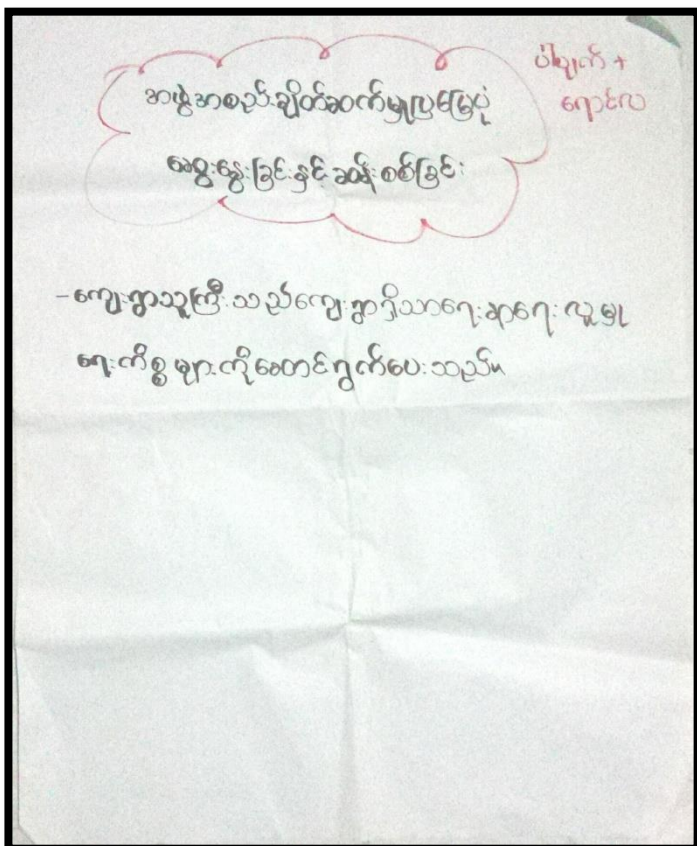 ပိချက် +
ရောင်လ
အဖွဲ့အစည်းချိတ်ဆက်မှုပြမြေပုံ
ဆွေးနွေးခြင်းနှင့်ဆန်းစစ်ခြင်း
-ကျေးရွာသူကြီးသည်ကျေးရွာရှိသာရေးနာရေးလူမှု
ရေးကိစ္စများကိုဆောင်ရွက်ပေးသည်။